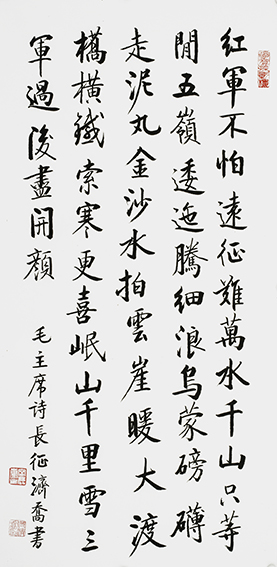 紅軍不怕遠征難萬水千山只等
閒五嶺逶迤騰細浪烏蒙磅礴
走泥丸金沙水拍雲崖暖大渡
橋橫鐵索寒更喜岷山千里雪三
軍過後盡開顏
毛主席诗長征濟喬書